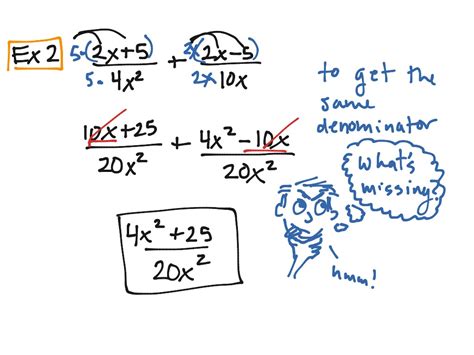 Ex 2 5·(2x+5)/5·4x² + 2x(2x-5)/2x·10x
to get the
same
denominator
10x+25/20x² + 4x²-10x/20x²
What's
missing?
4x²+25/20x²
hmm!